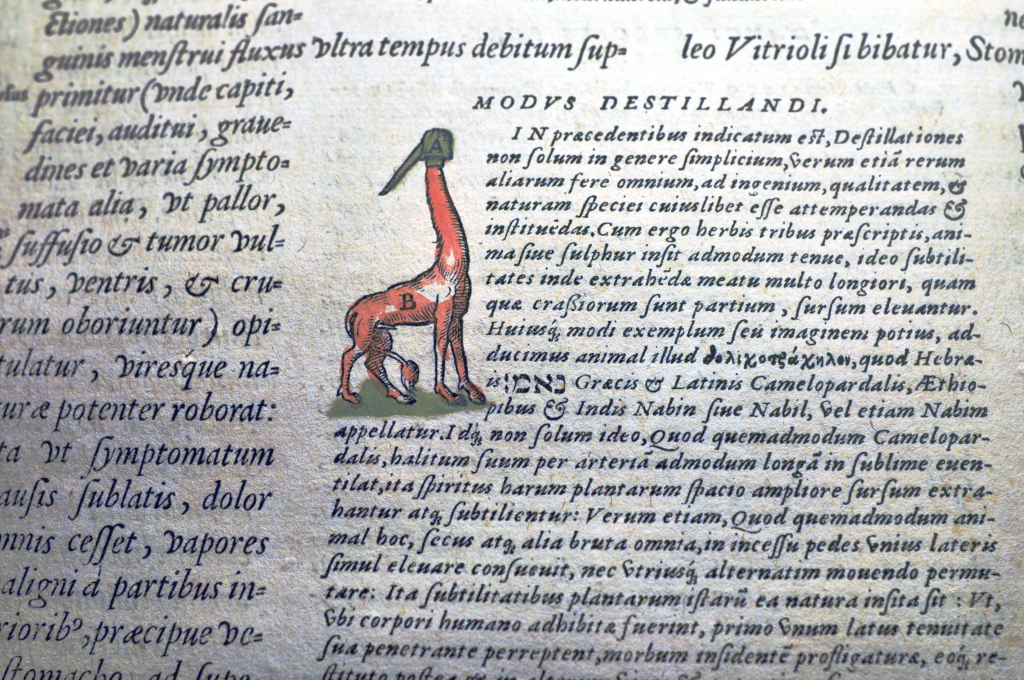 ctiones) naturalis san=
guinis menſtrui fluxus vltra tempus debitum ſup=
primitur (vnde capiti,
faciei, auditui, graue=
dines et varia ſympto=
mata alia, vt pallor,
ſuffuſio & tumor vul=
tus, ventris, & cru=
rum oboriuntur) opi=
tulatur, viresque na=
turæ potenter roborat:
ta vt ſymptomatum
auſis ſublatis, dolor
mnis ceſſet, vapores
aligni à partibus in=
riorib⁹, præcipue ve=
ſtomacho, ad ſupe
leo Vitrioli ſi bibatur, Stom
MODVS DESTILLANDI.
IN præcedentibus indicatum eſt, Deſtillationes
non ſolum in genere ſimplicium, verum etiã rerum
aliarum fere omnium, ad ingenium, qualitatem, &
naturam ſpeciei cuiuslibet eſſe attemperandas &
inſtituēdas. Cum ergo herbis tribus præſcriptis, ani-
ma ſiue ſulphur inſit admodum tenue, ideo ſubtili-
tates inde extrahēdæ meatu multo longiori, quam
quæ craßiorum ſunt partium, ſurſum eleuantur.
Huiusq́; modi exemplum ſeu imaginem potius, ad-
ducimus animal illud δολιχοτράχηλον, quod Hebræ-
is נאמן Græcis & Latinis Camelopardalis, Æthio-
pibus & Indis Nabin ſiue Nabil, vel etiam Nabim
appellatur. Idq́; non ſolum ideo, Quod quemadmodum Camelopar-
dalis, halitum ſuum per arteriã admodum longã in ſublime euen-
tilat, ita ſpiritus harum plantarum ſpacio ampliore ſurſum extra-
hantur atq́; ſubtilientur: Verum etiam, Quod quemadmodum ani-
mal hoc, ſecus atq́; alia bruta omnia, in inceſſu pedes vnius lateris
ſimul eleuare conſueuit, nec vtriusq́; alternatim mouendo permu-
tare: Ita ſubtilitatibus plantarum iſtarũ ea natura inſita ſit: Vt,
vbi corpori humano adhibitæ fuerint, primo vnum latus tenuitate
ſua penetrante perreptent, morbum inſidentē profligaturæ, eoq́; re-
A
B